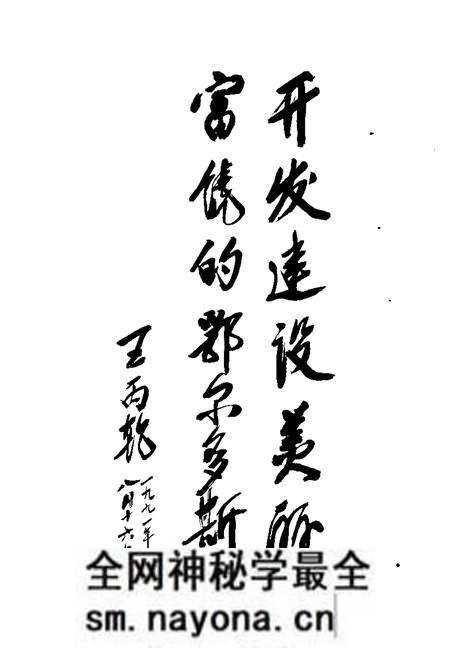 开发建设美丽
富饶的鄂尔多斯
王丙乾
一九九一年
八月十六日
全网神秘学最全
sm.nayona.cn